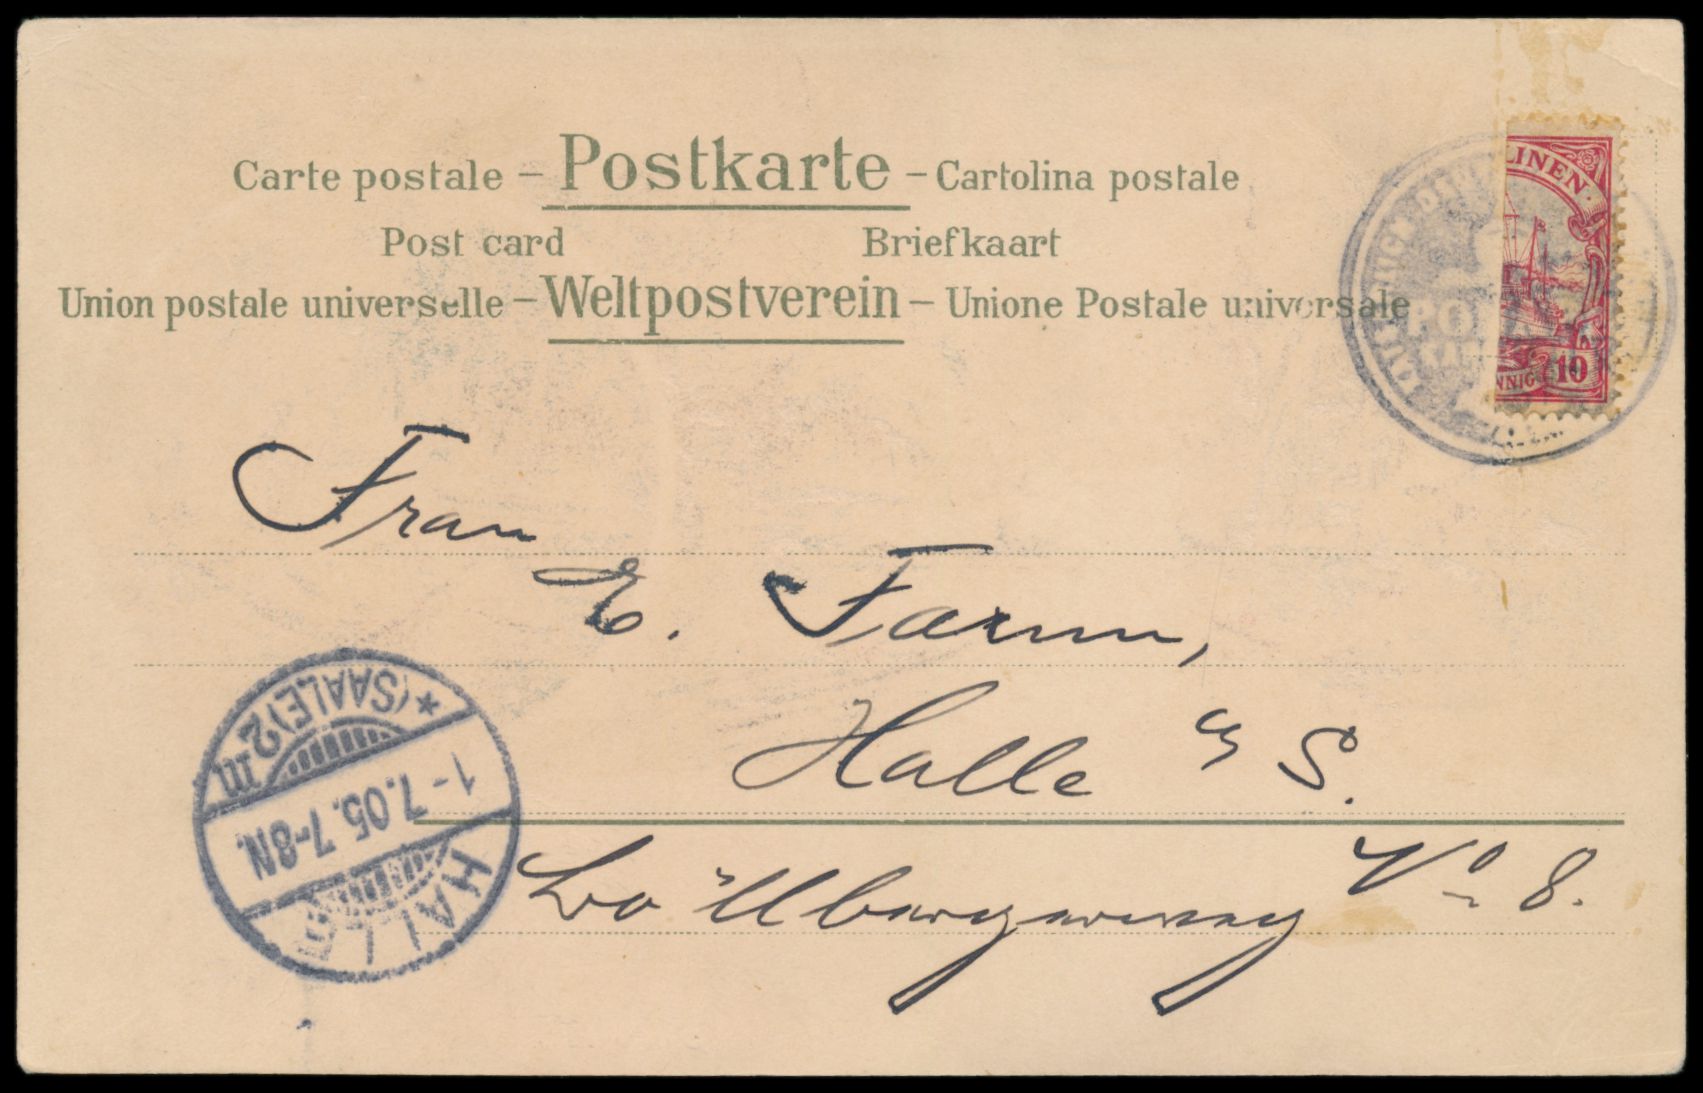 Carte postale – Postkarte – Cartolina postale
Post card Briefkaart
Union postale universelle – Weltpostverein – Unione Postale universale
LINEN.
NNIG 10
PONA
Frau
E. Farm,
Halle a/S.
No 8.
* (SAALE) 2 m
1-7.05.7-8N.
HALLE